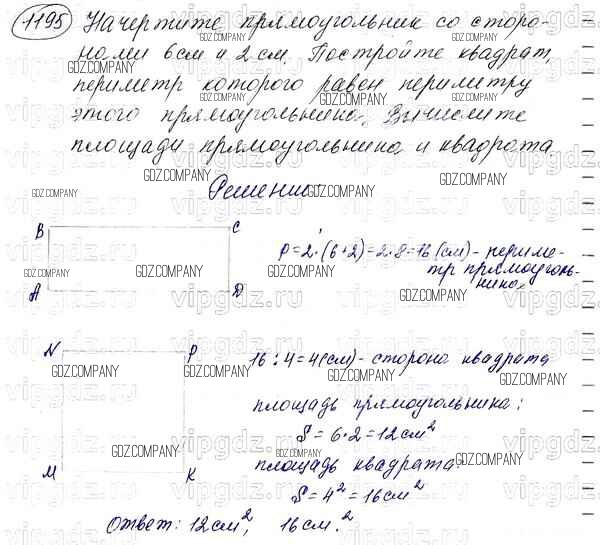 1195 Начертите прямоугольник со сторо-
нами 6 см и 2 см. Постройте квадрат,
периметр которого равен периметру
этого прямоугольника. Вычислите
площади прямоугольника и квадрата.
Решение
B C
A D
P = 2·(6+2) = 2·8 = 16 (см) - периме-
тр прямоуголь-
ника
N P
M K
16 : 4 = 4 (см) - сторона квадрата
площадь прямоугольника:
S = 6·2 = 12 см²
площадь квадрата:
S = 4² = 16 см²
Ответ: 12 см², 16 см.²
GDZ.COMPANY
vipgdz.ru